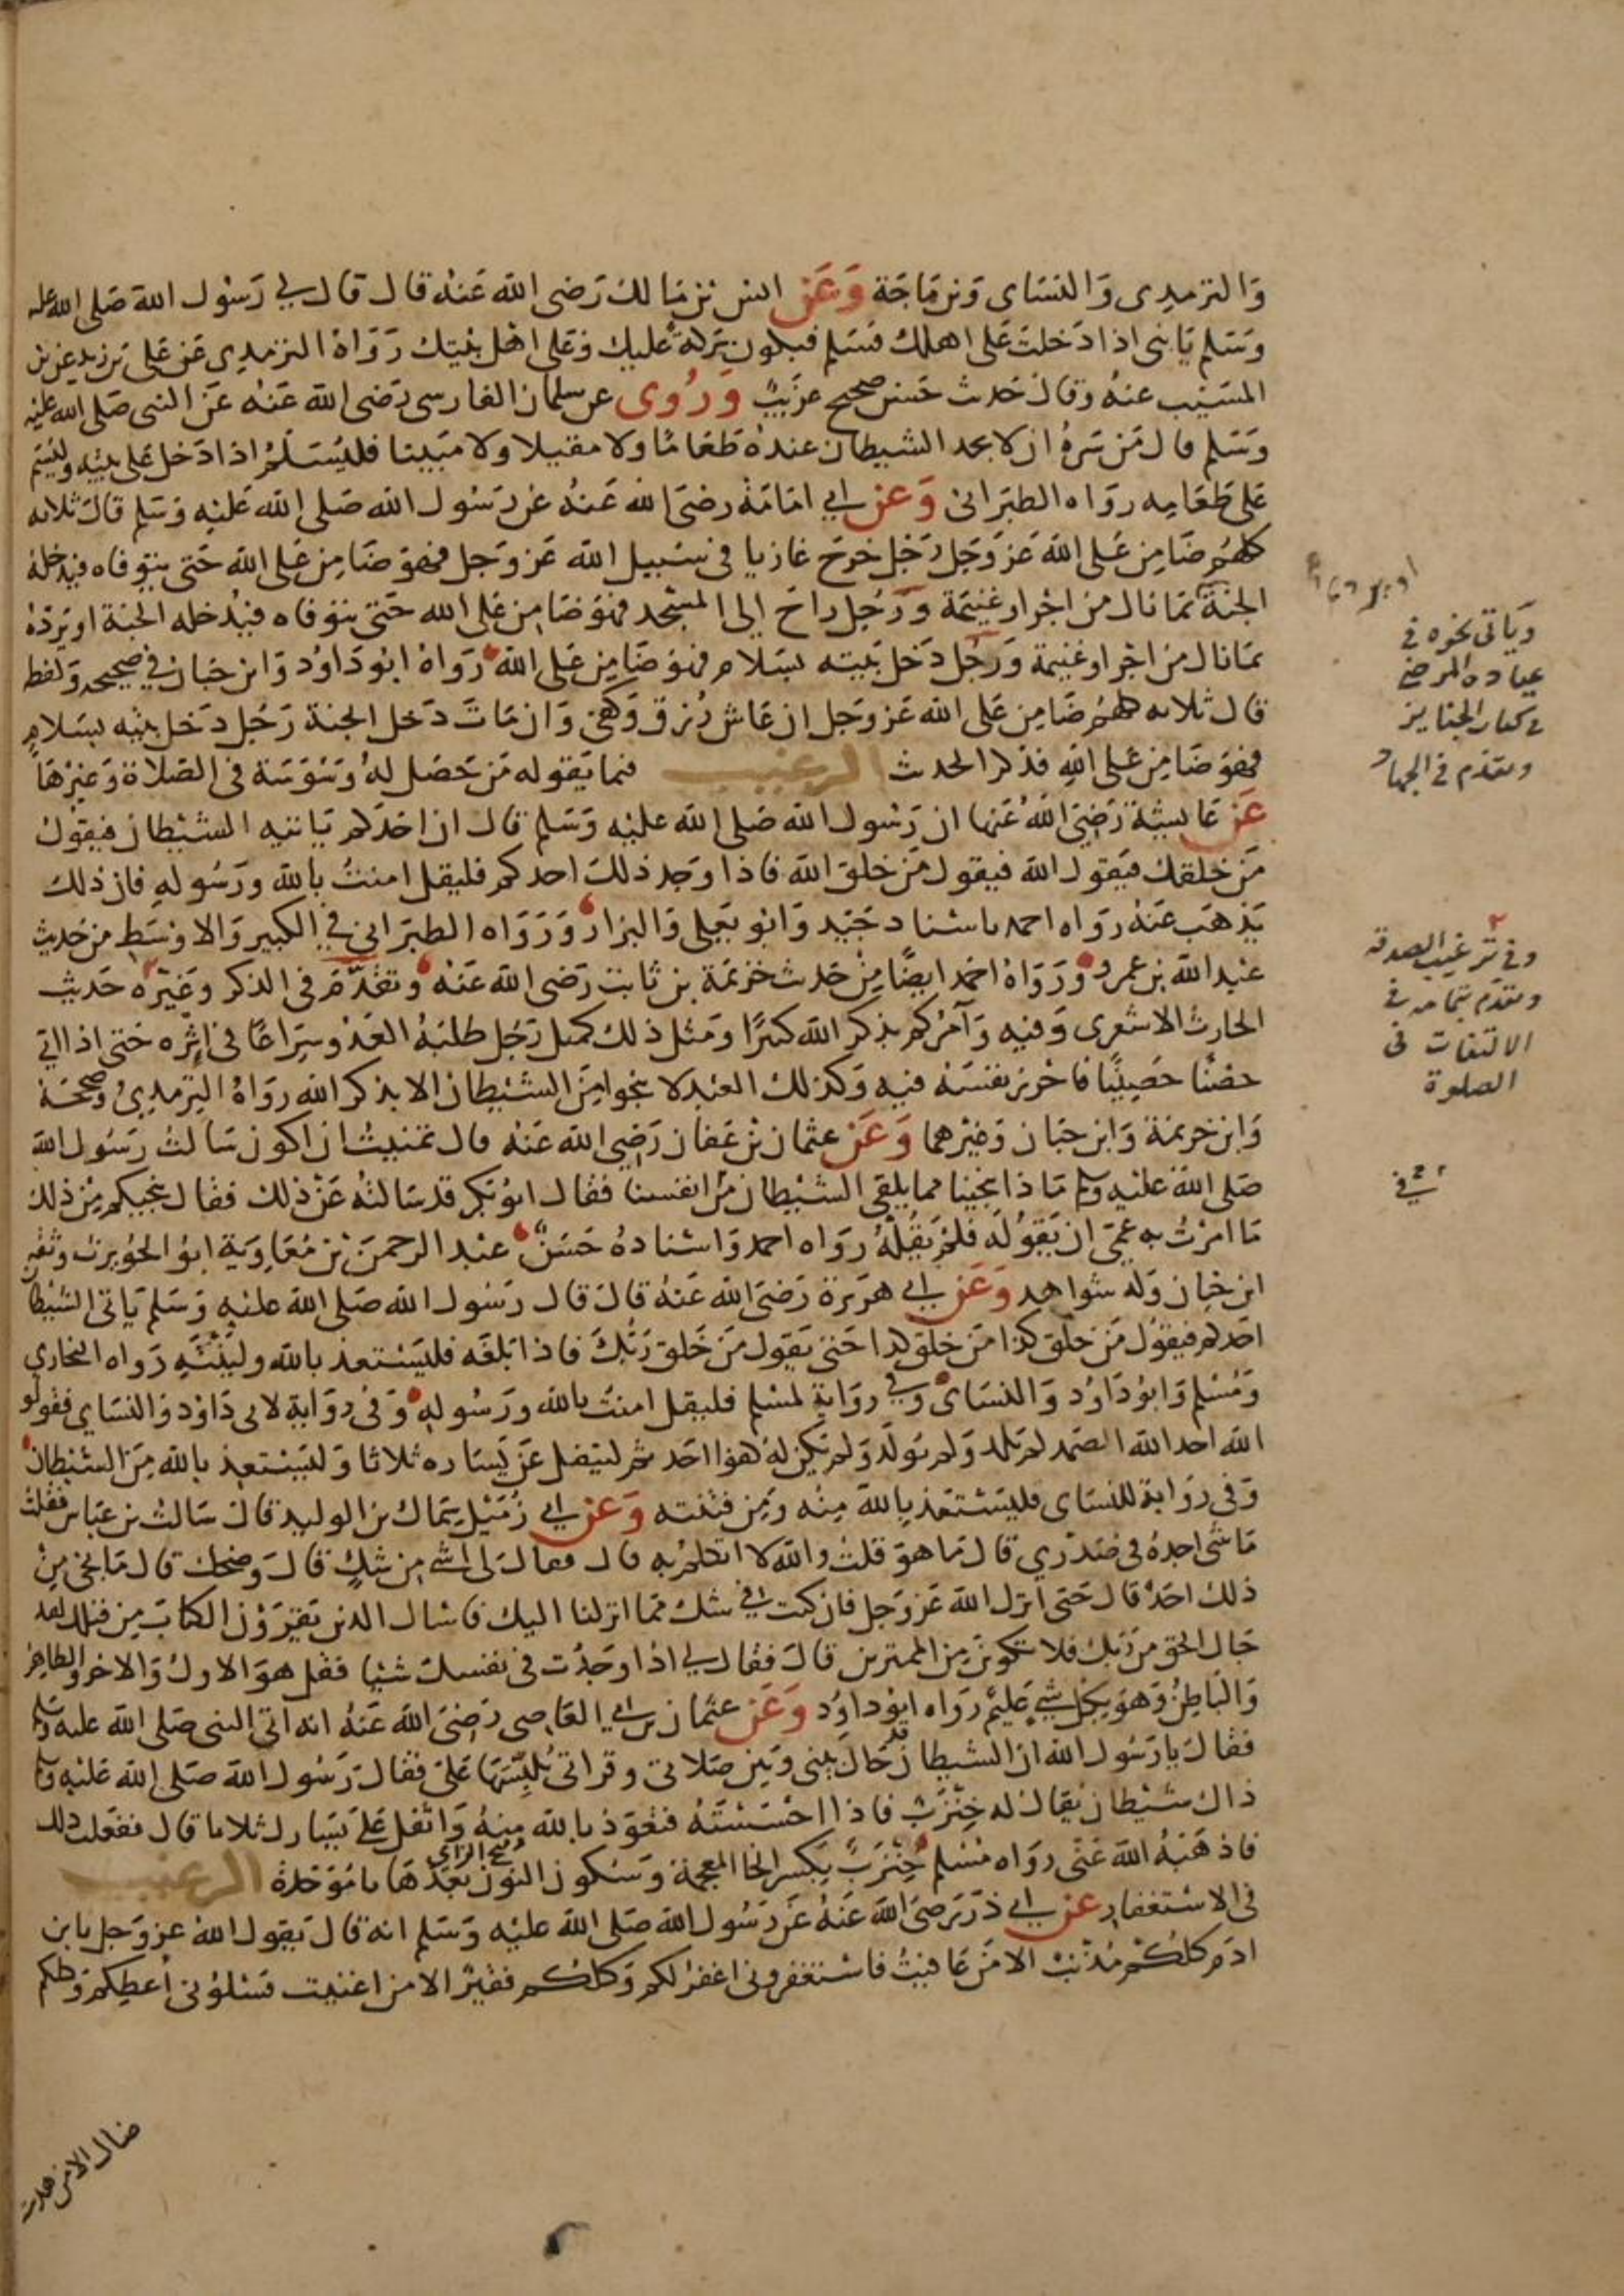 والترمذى والنساى وبن ماجة وعن انس بن مالك رضى الله عنه قال قال لي رسول الله صلى الله عليه
وسلم يا بنى اذا دخلت على اهلك فسلم فيكون بركة عليك وعلى اهل بيتك رواه الترمذى عن على بن زيد عن بن
المسيب عنه وقال حديث حسن صحيح غريب وروى عن سلمان الفارسى رضى الله عنه عن النبى صلى الله عليه
وسلم قال من سره ان لا يجد الشيطان عنده طعاما ولا مقيلا ولا مبيتا فليسلم اذا دخل على بيته وليسم
على طعامه رواه الطبرانى وعن ابي امامة رضى الله عنه عن رسول الله صلى الله عليه وسلم قال ثلاثه
كلهم ضامن على الله عز وجل رجل خرج غازيا فى سبيل الله عز وجل فهو ضامن على الله حتى يتوفاه فيدخله
الجنة بما نال من اجر او غنيمة ورجل راح الى المسجد فهو ضامن على الله حتى يتوفاه فيدخله الجنة او يرده
بما نال من اجر او غنيمة ورجل دخل بيته بسلام فهو ضامن على الله رواه ابو داود وابن حبان في صحيحه ولفظه
قال ثلاثه كلهم ضامن على الله عز وجل ان عاش رزق وكفى وان مات دخل الجنة رجل دخل بيته بسلام
فهو ضامن على الله فذكر الحديث الترغيب فيما يقوله من حصل له وسوسة فى الصلاة وغيرها
عن عايشة رضى الله عنها ان رسول الله صلى الله عليه وسلم قال ان احدكم ياتيه الشيطان فيقول
من خلقك فيقول الله فيقول من خلق الله فاذا وجد ذلك احدكم فليقل امنت بالله ورسوله فان ذلك
يذهب عنه رواه احمد باسناد جيد وابو يعلى والبزار ورواه الطبرانى في الكبير والاوسط من حديث
عبد الله بن عمرو ورواه احمد ايضا من حديث خزيمة بن ثابت رضى الله عنه وتقدم فى الذكر وغيره حديث
الحارث الاشعرى وفيه وآمركم بذكر الله كثيرا ومثل ذلك كمثل رجل طلبه العدو سراعا فى اثره حتى اذا اتى
حصنا حصينا فاحرز نفسه فيه وكذلك العبد لا ينجوا من الشيطان الا بذكر الله رواه الترمذي وصححه
وابن خزيمة وابن حبان وغيرهما وعن عثمان بن عفان رضى الله عنه قال تمنيت ان اكون سالت رسول الله
صلى الله عليه وسلم ماذا ينجينا مما يلقى الشيطان من انفسنا فقال ابو بكر قد سالته عن ذلك فقال ينجيكم من ذلك
ما امرت به عمى ان يقوله فلم يقله رواه احمد واسناده حسن عبد الرحمن بن معاوية ابو الحويرث وثقه
ابن حبان وله شواهد وعن ابي هريرة رضى الله عنه قال قال رسول الله صلى الله عليه وسلم ياتى الشيطان
احدكم فيقول من خلق كذا من خلق كذا حتى يقول من خلق ربك فاذا بلغه فليستعذ بالله ولينته رواه البخاري
ومسلم وابو داود والنساى وفي رواية لمسلم فليقل امنت بالله ورسوله وفى رواية لابى داود والنساي فقولوا
الله احد الله الصمد لم يلد ولم يولد ولم يكن له كفوا احد ثم ليتفل عن يساره ثلاثا وليستعذ بالله من الشيطان
وفى رواية للنساى فليستعذ بالله منه ومن فتنته وعن ابي زميل سماك بن الوليد قال سالت بن عباس فقلت
ما شى اجده فى صدري قال ما هو قلت والله لا اتكلم به قال فقال لى اشى من شك قال وضحك قال ما نجى من
ذلك احد قال حتى انزل الله عز وجل فان كنت في شك مما انزلنا اليك فاسال الذين يقرؤن الكتاب من قبلك لقد
جاك الحق من ربك فلا تكونن من الممترين قال فقال لي اذا وجدت فى نفسك شيا فقل هو الاول والاخر والظاهر
والباطن وهو بكل شي عليم رواه ابو داود وعن عثمان بن ابي العاصى رضى الله عنه انه اتى النبى صلى الله عليه وسلم
فقال يا رسول الله ان الشيطان قد حال بينى وبين صلاتى وقراتى يلبسها على فقال رسول الله صلى الله عليه وسلم
ذاك شيطان يقال له خنزب فاذا احسسته فتعوذ بالله منه واتفل على يسارك ثلاثا قال ففعلت ذلك
فاذهبه الله عنى رواه مسلم خنزب بكسر الخا المعجمة وسكون النون وفتح الزاى بعدها با موحدة الترغيب
فى الاستغفار عن ابي ذر رضى الله عنه عن رسول الله صلى الله عليه وسلم انه قال يقول الله عز وجل يا بن
ادم كلكم مذنب الا من عافيت فاستغفرونى اغفر لكم وكلكم فقير الا من اغنيت فسئلونى أعطكم وكلكم
ضال الا من هديت
وياتى نحوه في
عياده المرضى
في كتاب الجنايز
وتقدم فى الجهاد
وفي ترغيب الصدقة
وتقدم بتمامه في
الالتفات فى
الصلوة